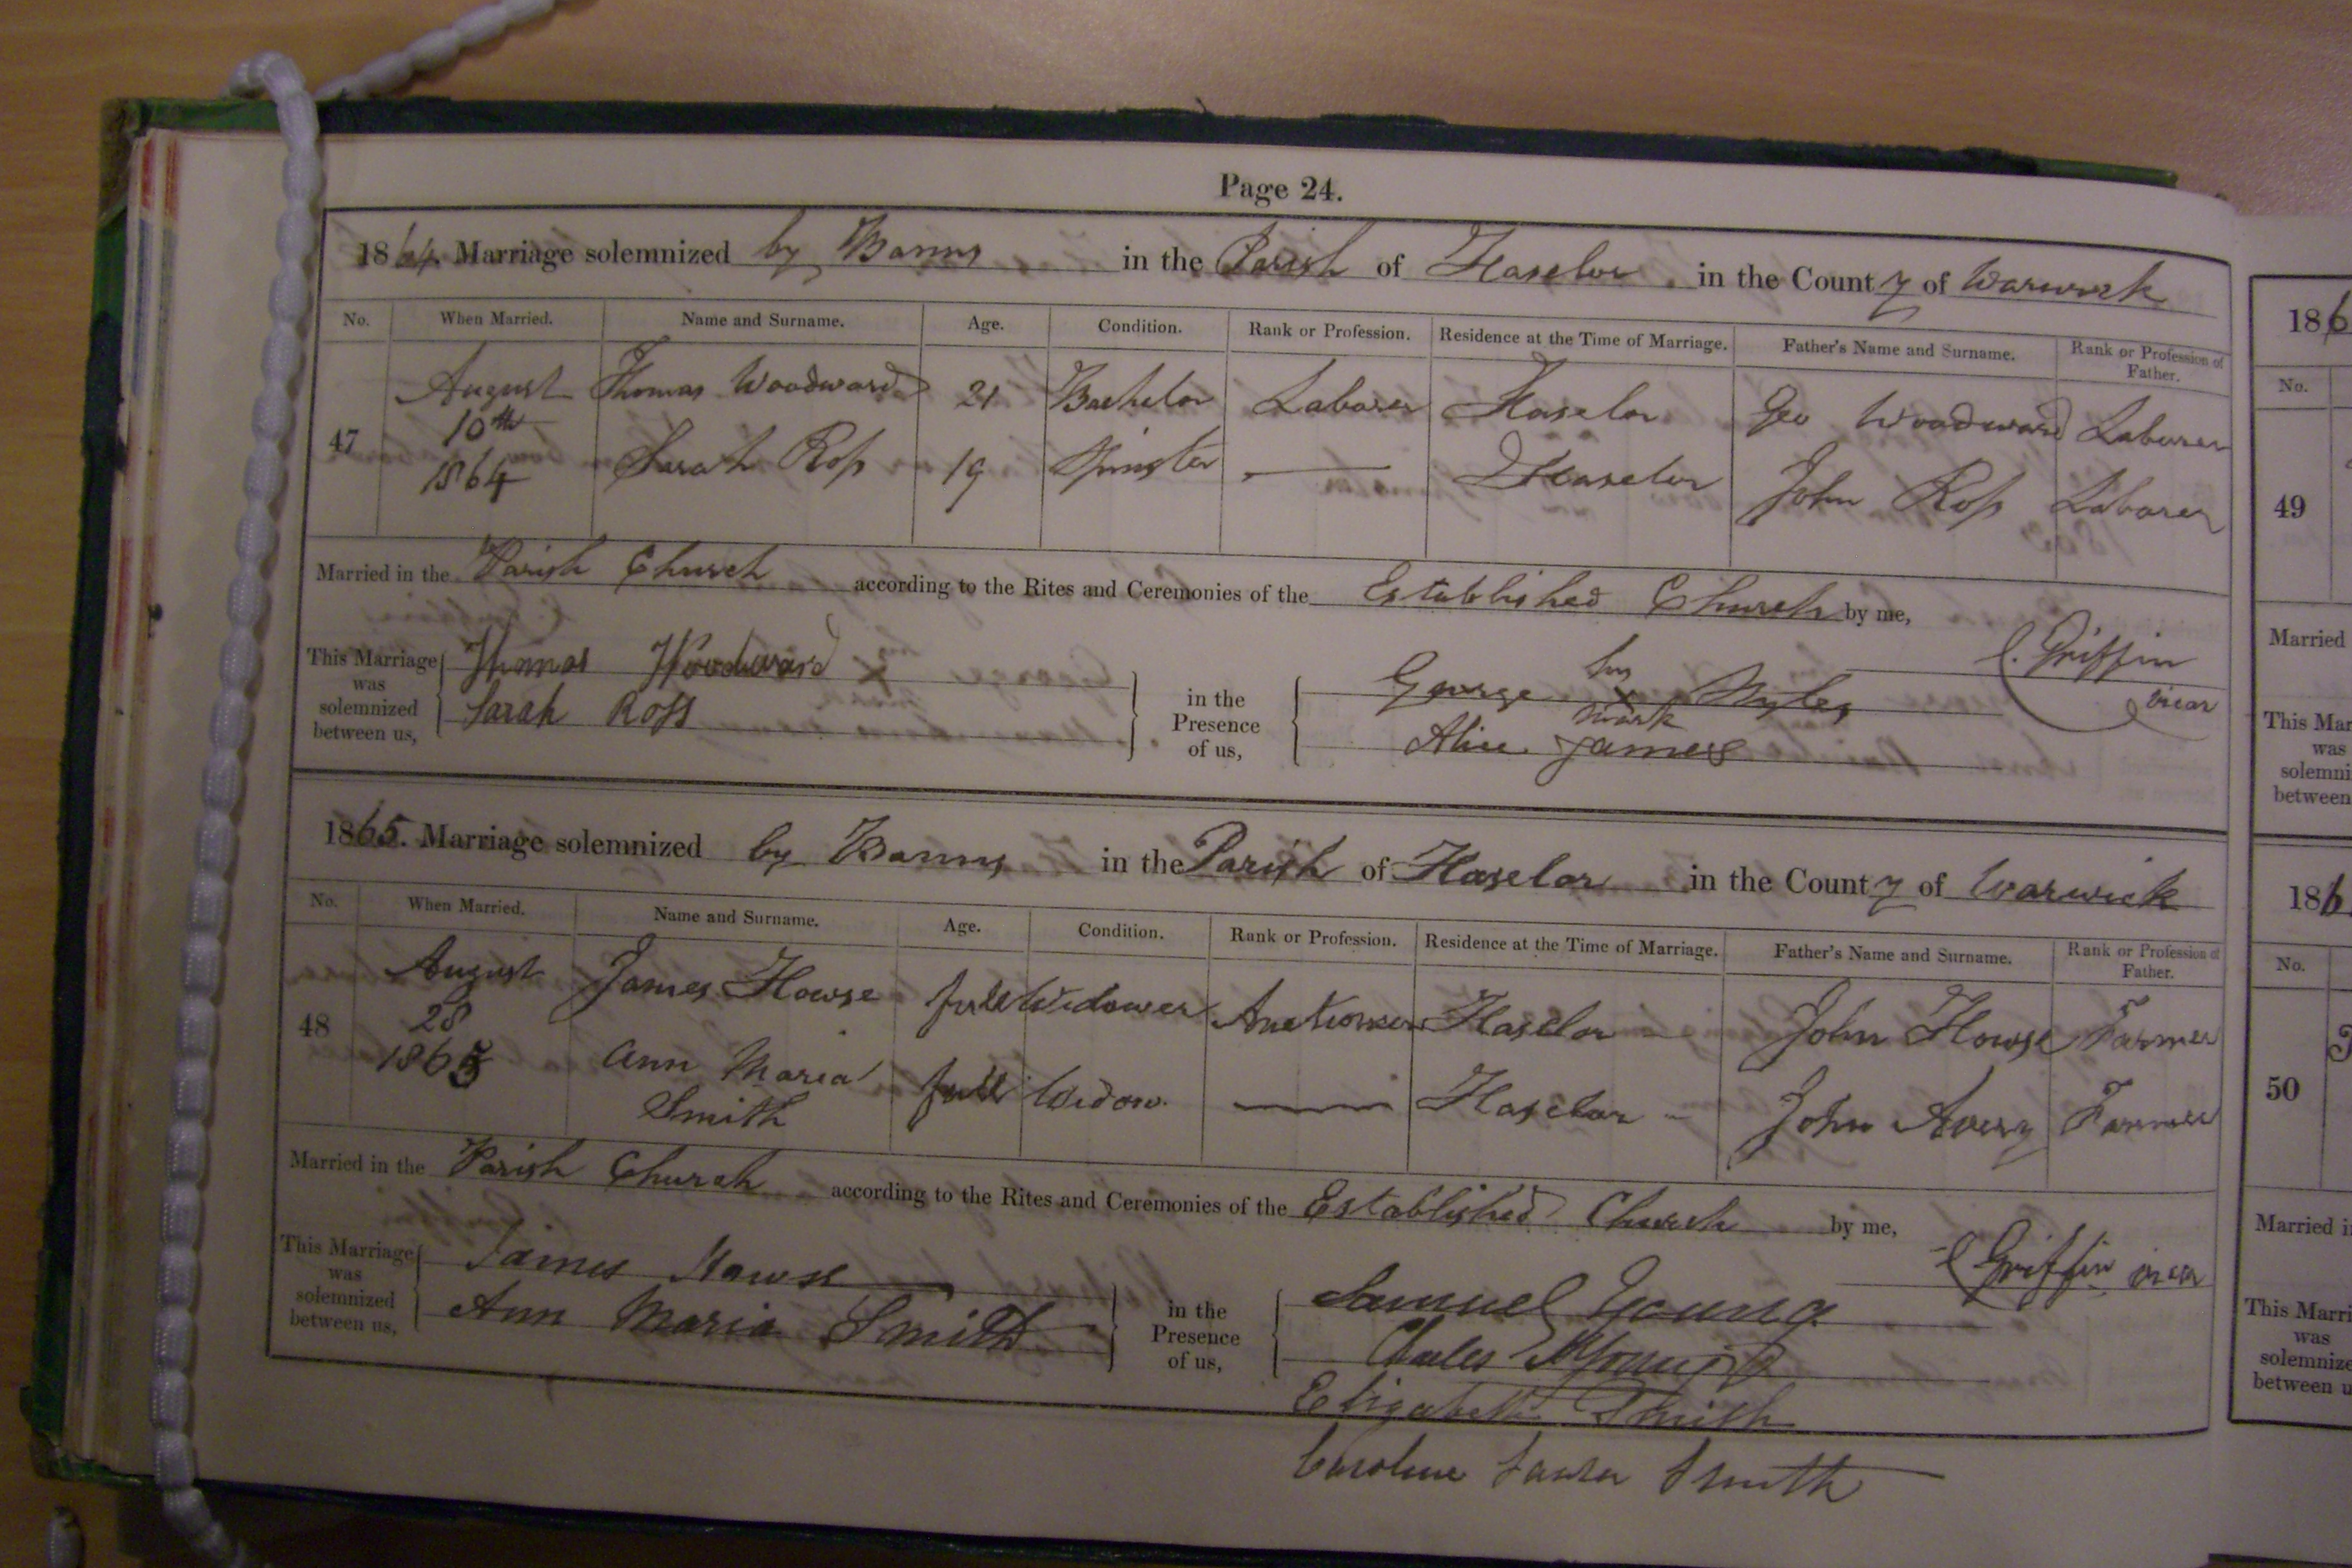 Page 24.
1864. Marriage solemnized by Banns in the Parish of Haselor in the County of Warwick
No. When Married. Name and Surname. Age. Condition. Rank or Profession. Residence at the Time of Marriage. Father's Name and Surname. Rank or Profession of Father.
47 August 10th 1864 Thomas Woodward 21 Bachelor Laborer Haselor Geo Woodward Laborer
Sarah Ross 19 Spinster — Haselor John Ross Laborer
Married in the Parish Church according to the Rites and Ceremonies of the Established Church by me,
C. Griffin
vicar
This Marriage was solemnized between us, Thomas Woodward
Sarah Ross
in the Presence of us, George his x mark Myles
Alice James
1865. Marriage solemnized by Banns in the Parish of Haselor in the County of Warwick
No. When Married. Name and Surname. Age. Condition. Rank or Profession. Residence at the Time of Marriage. Father's Name and Surname. Rank or Profession of Father.
48 August 28 1865 James Howse full Widower Auctioneer Haselor John Howse Farmer
Ann Maria Smith full Widow. — Haselor John Avery Farmer
Married in the Parish Church according to the Rites and Ceremonies of the Established Church by me,
C Griffin vicar
This Marriage was solemnized between us, James Howse
Ann Maria Smith
in the Presence of us, Samuel Young
Charles Young
Elizabeth Smith
Caroline Smith
186
No.
49
Married
This Mar
was
solemni
between
186
No.
50
Married i
This Marri
was
solemnize
between u